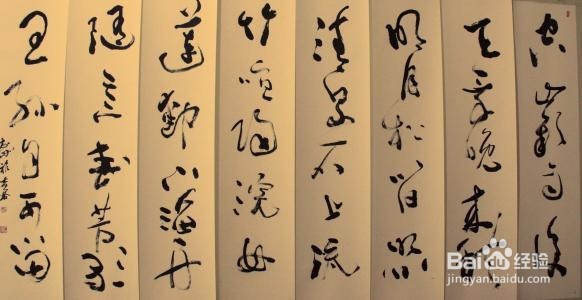 空山新雨後
天氣晚來秋
明月松間照
清泉石上流
竹喧歸浣女
蓮動下漁舟
隨意春芳歇
王孫自可留
Bai du 百度经验
jingyan.baidu.com